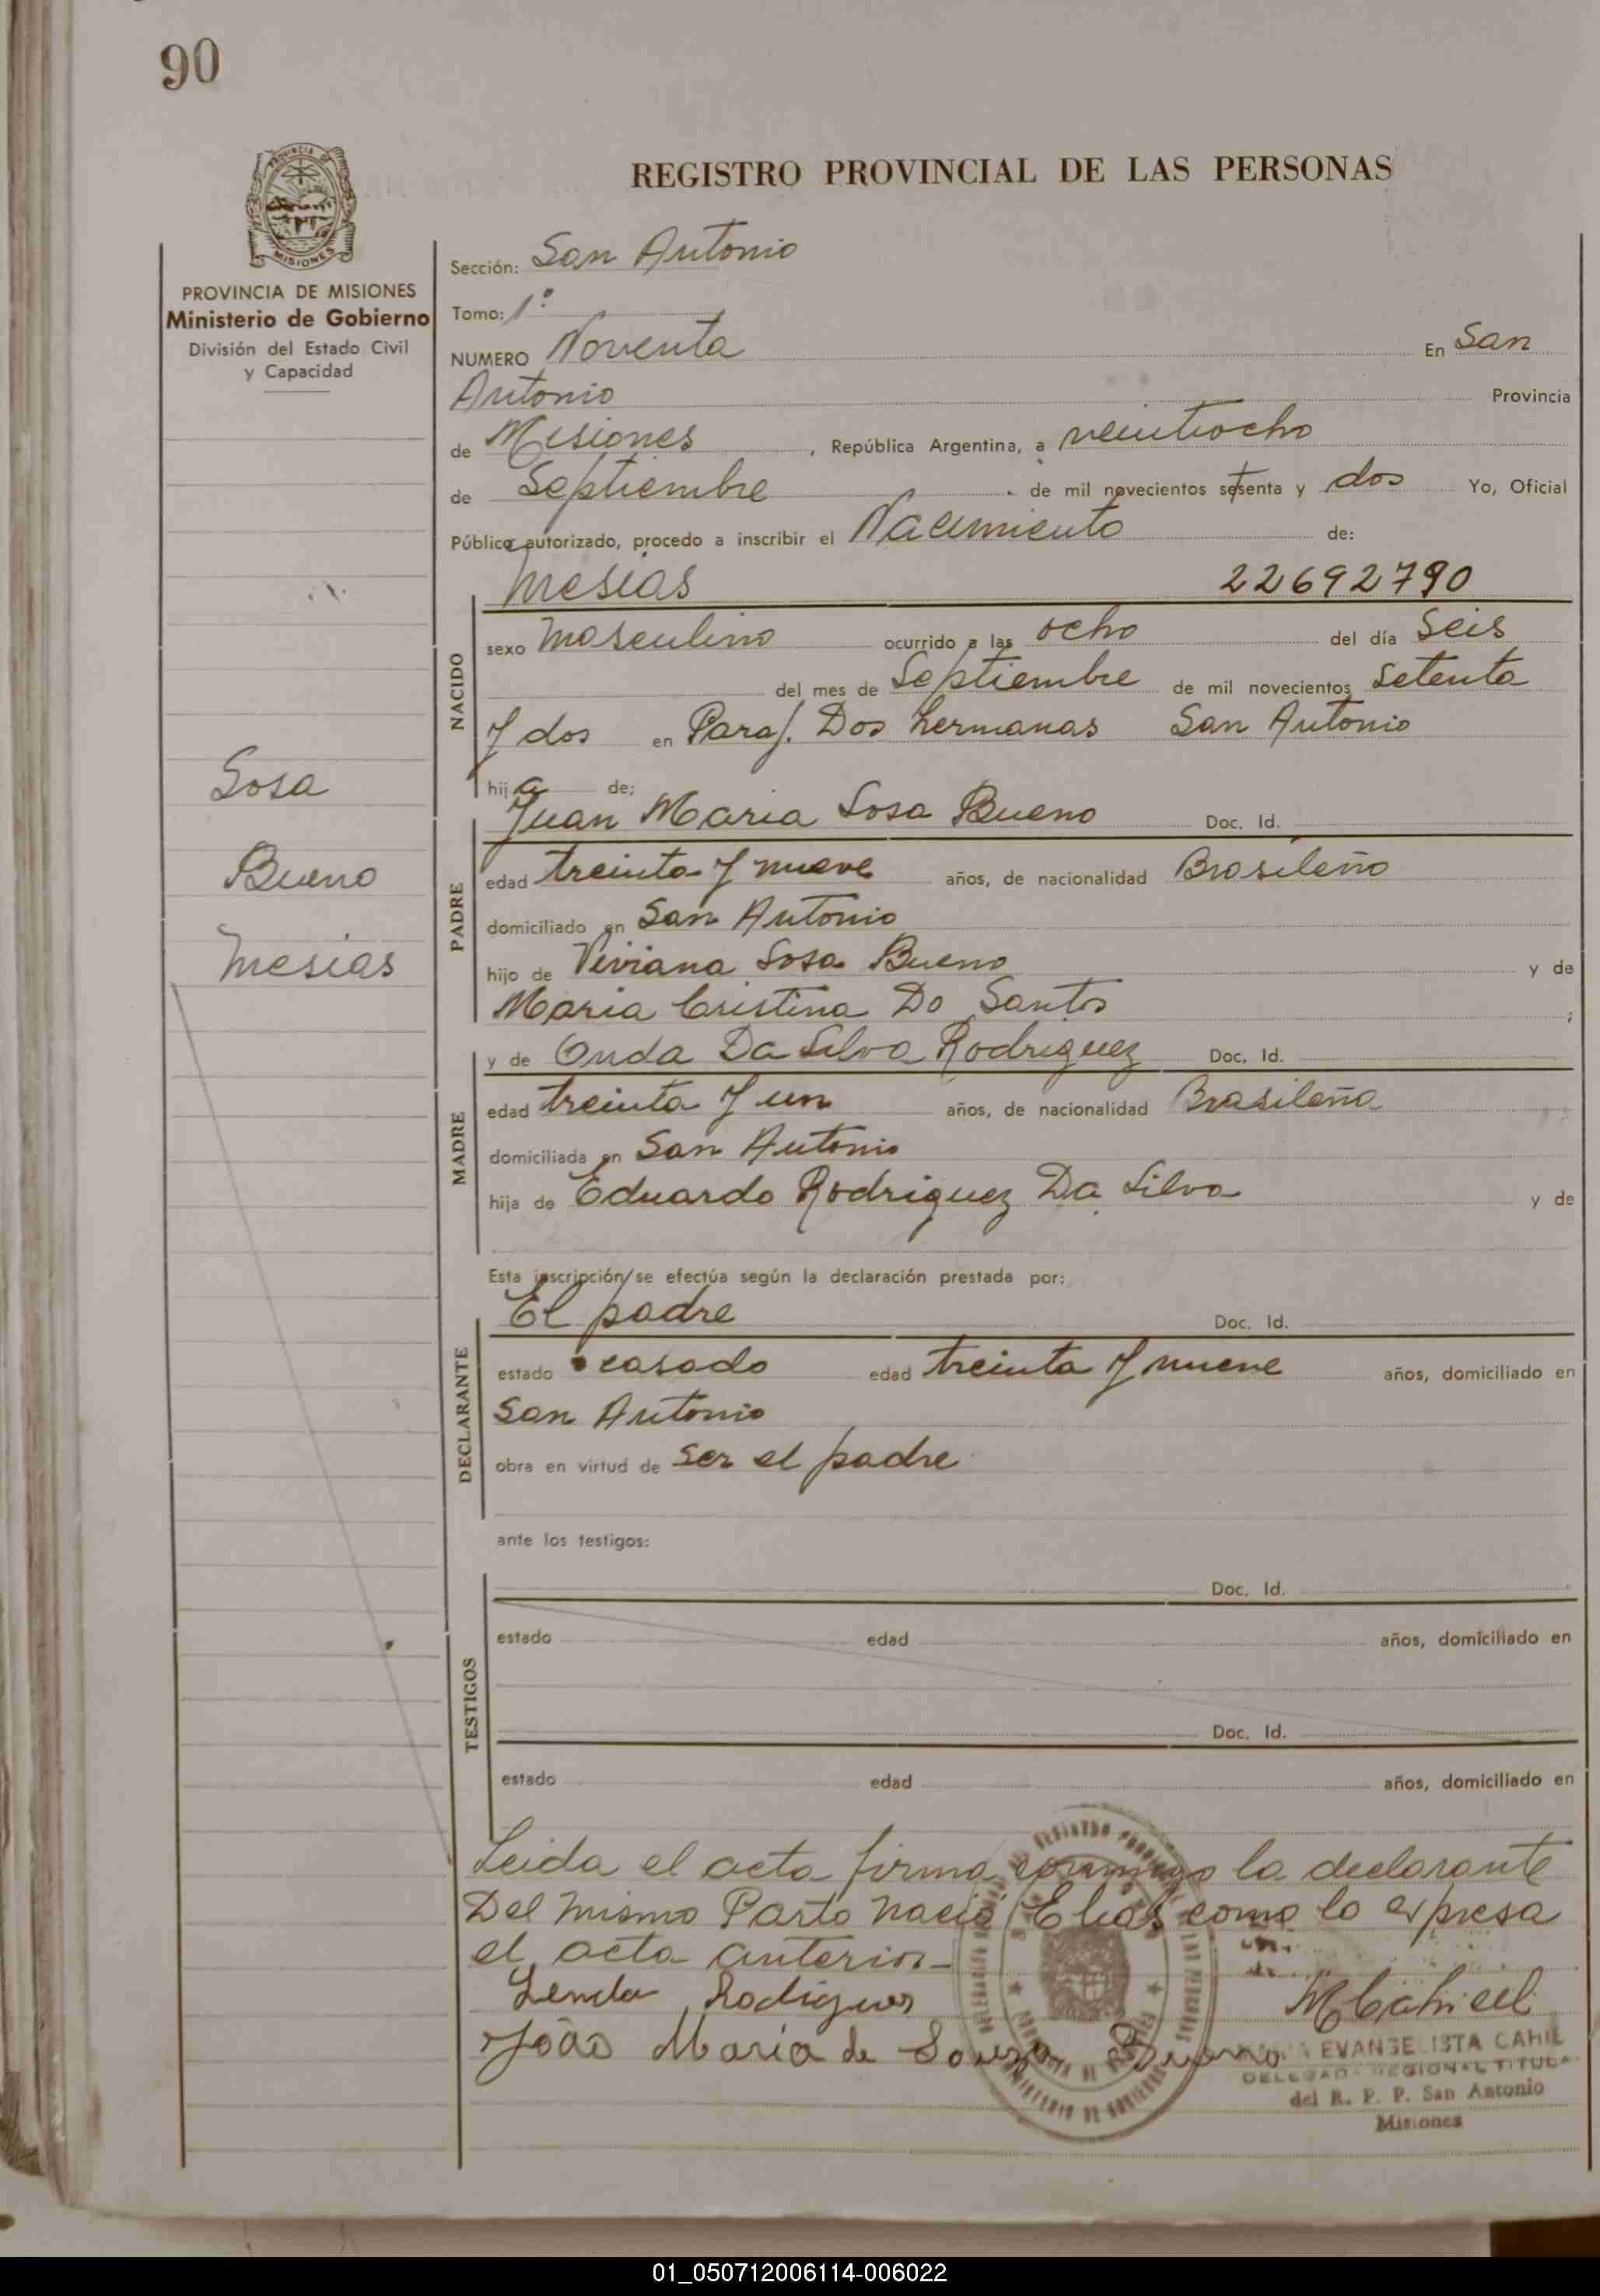 90
PROVINCIA DE
MISIONES
PROVINCIA DE MISIONES
Ministerio de Gobierno
División del Estado Civil
y Capacidad
REGISTRO PROVINCIAL DE LAS PERSONAS
Sección: San Antonio
Tomo: 1º
NUMERO Noventa En San
Antonio Provincia
de Misiones, República Argentina, a veintiocho
de Septiembre de mil novecientos setenta y dos Yo, Oficial
Público autorizado, procedo a inscribir el Nacimiento de:
Mesias 22692790
NACIDO
sexo Masculino ocurrido a las ocho del día Seis
del mes de Septiembre de mil novecientos Setenta
y dos en Paraj. Dos hermanas San Antonio
hijo de:
Sosa
Bueno
Mesias
PADRE
Juan Maria Sosa Bueno Doc. Id.
edad treinta y nueve años, de nacionalidad Brasileño
domiciliado en San Antonio
hijo de Viviana Sosa Bueno y de
Maria Cristina Do Santos ;
MADRE
y de Onda Da Silva Rodriguez Doc. Id.
edad treinta y un años, de nacionalidad Brasileña
domiciliada en San Antonio
hija de Eduardo Rodriguez Da Silva y de
Esta inscripción se efectúa según la declaración prestada por:
DECLARANTE
El padre Doc. Id.
estado casado edad treinta y nueve años, domiciliado en
San Antonio
obra en virtud de ser el padre
ante los testigos:
TESTIGOS
Doc. Id.
estado edad años, domiciliado en
Doc. Id.
estado edad años, domiciliado en
Leida el acta firma conmigo la declarante
Del mismo Parto nació Elias como lo expresa
el acta anterior-
Lenda Rodigues
João Maria de Souza Bueno
EVANGELISTA CAHIE
DELEGAD REGIONAL TITULA
del R. P. P. San Antonio
Misiones
01_050712006114-006022